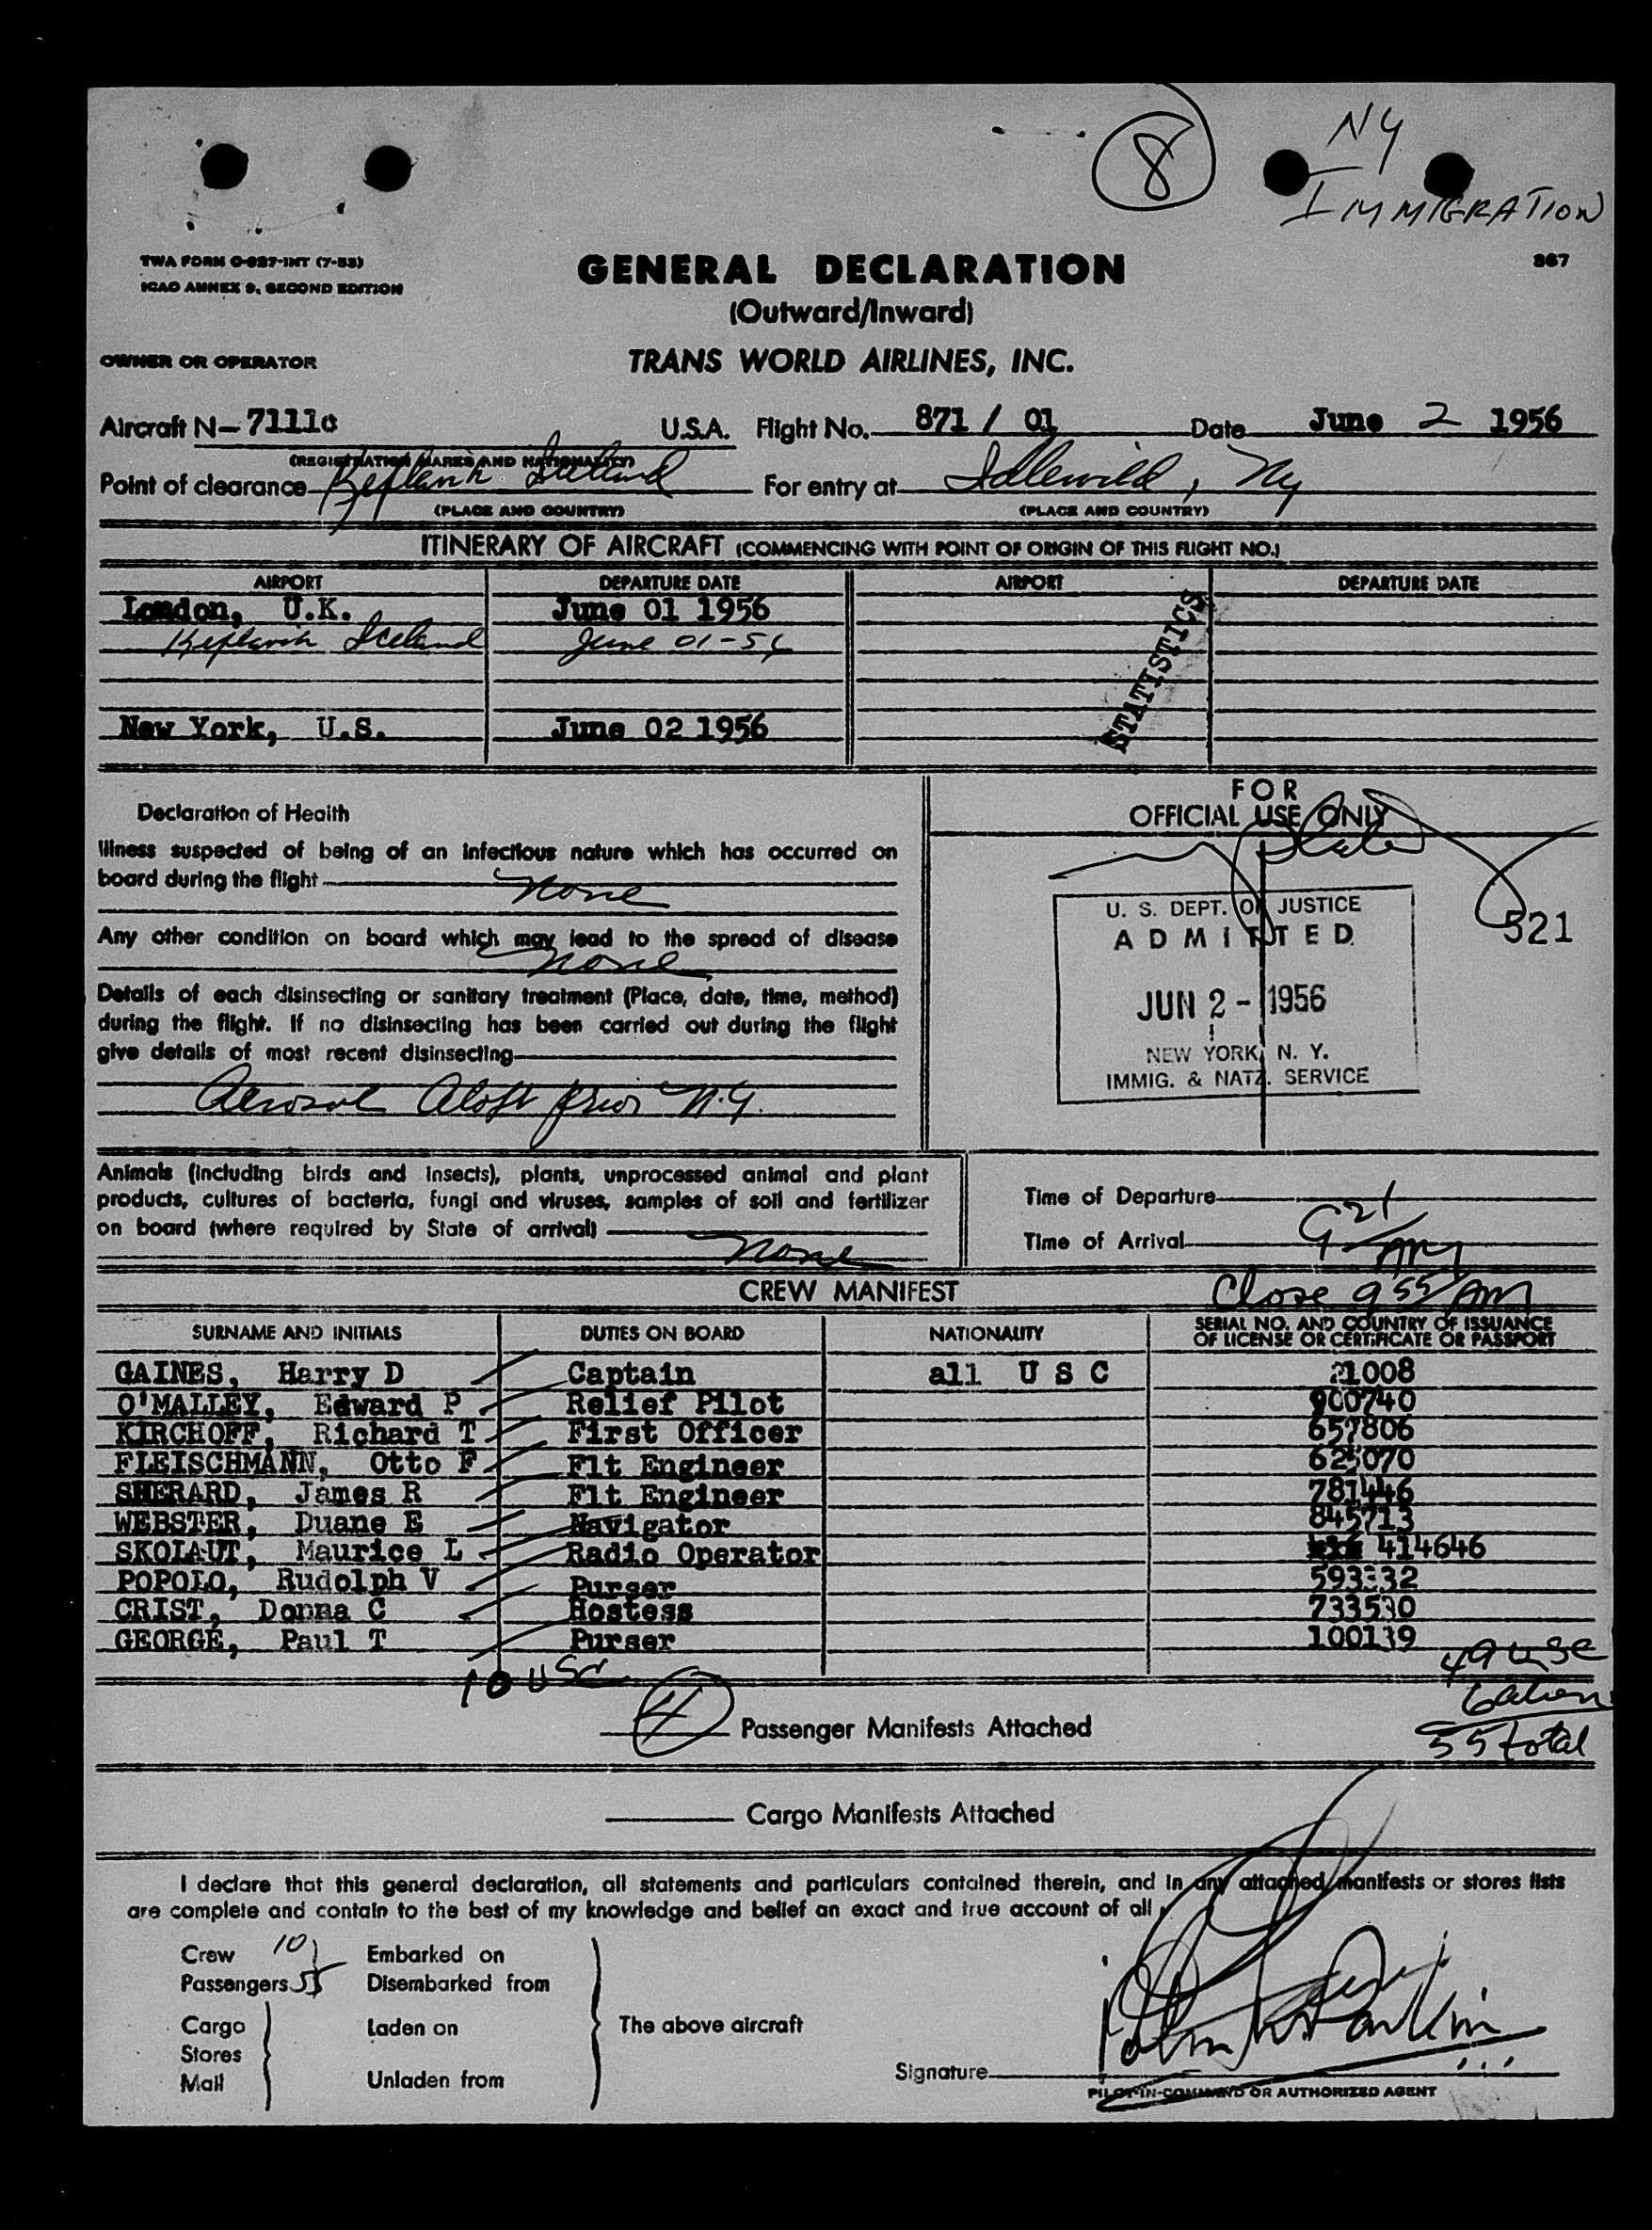 8
NY
IMMIGRATION
TWA FORM O-927-INT (7-53)
ICAO ANNEX 9, SECOND EDITION
GENERAL DECLARATION
867
(Outward/Inward)
OWNER OR OPERATOR
TRANS WORLD AIRLINES, INC.
Aircraft N- 7111C U.S.A. Flight No. 871 / 01 Date June 2 1956
(REGISTRATION MARKS AND NATIONALITY)
Point of clearance Keflavik Iceland For entry at Idlewild, Ny
(PLACE AND COUNTRY) (PLACE AND COUNTRY)
ITINERARY OF AIRCRAFT (COMMENCING WITH POINT OF ORIGIN OF THIS FLIGHT NO.)
AIRPORT DEPARTURE DATE AIRPORT DEPARTURE DATE
London, U.K. June 01 1956
Keflavik Iceland June 01-56
STATISTICS
New York, U.S. June 02 1956
FOR
OFFICIAL USE ONLY
Declaration of Health
Illness suspected of being of an infectious nature which has occurred on
board during the flight None
Any other condition on board which may lead to the spread of disease
None
Details of each disinsecting or sanitary treatment (Place, date, time, method)
during the flight. If no disinsecting has been carried out during the flight
give details of most recent disinsecting
Aerosol Aloft prior N.Y.
U. S. DEPT. OF JUSTICE
ADMITTED
521
JUN 2 - 1956
NEW YORK, N. Y.
IMMIG. & NATZ. SERVICE
Animals (including birds and insects), plants, unprocessed animal and plant
products, cultures of bacteria, fungi and viruses, samples of soil and fertilizer
on board (where required by State of arrival) None
Time of Departure
Time of Arrival 9 21 AM
CREW MANIFEST
Close 9 55 AM
SURNAME AND INITIALS DUTIES ON BOARD NATIONALITY SERIAL NO. AND COUNTRY OF ISSUANCE
OF LICENSE OR CERTIFICATE OR PASSPORT
GAINES, Harry D Captain all U S C 21008
O'MALLEY, Edward P Relief Pilot 900740
KIRCHOFF, Richard T First Officer 657806
FLEISCHMANN, Otto F Flt Engineer 625070
SHERARD, James R Flt Engineer 781446
WEBSTER, Duane E Navigator 845713
SKOLAUT, Maurice L Radio Operator 414646
POPOLO, Rudolph V Purser 593332
CRIST, Donna C Hostess 733530
GEORGE, Paul T Purser 100139
10 USC
49 USC
6 alien
55 total
4 Passenger Manifests Attached
Cargo Manifests Attached
I declare that this general declaration, all statements and particulars contained therein, and in any attached manifests or stores lists
are complete and contain to the best of my knowledge and belief an exact and true account of all
Crew 10 Embarked on
Passengers 55 Disembarked from
Cargo Laden on
Stores
Mail Unladen from
The above aircraft
Signature
PILOT-IN-COMMAND OR AUTHORIZED AGENT